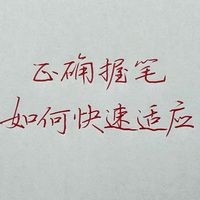 正确握笔
如何快速适应